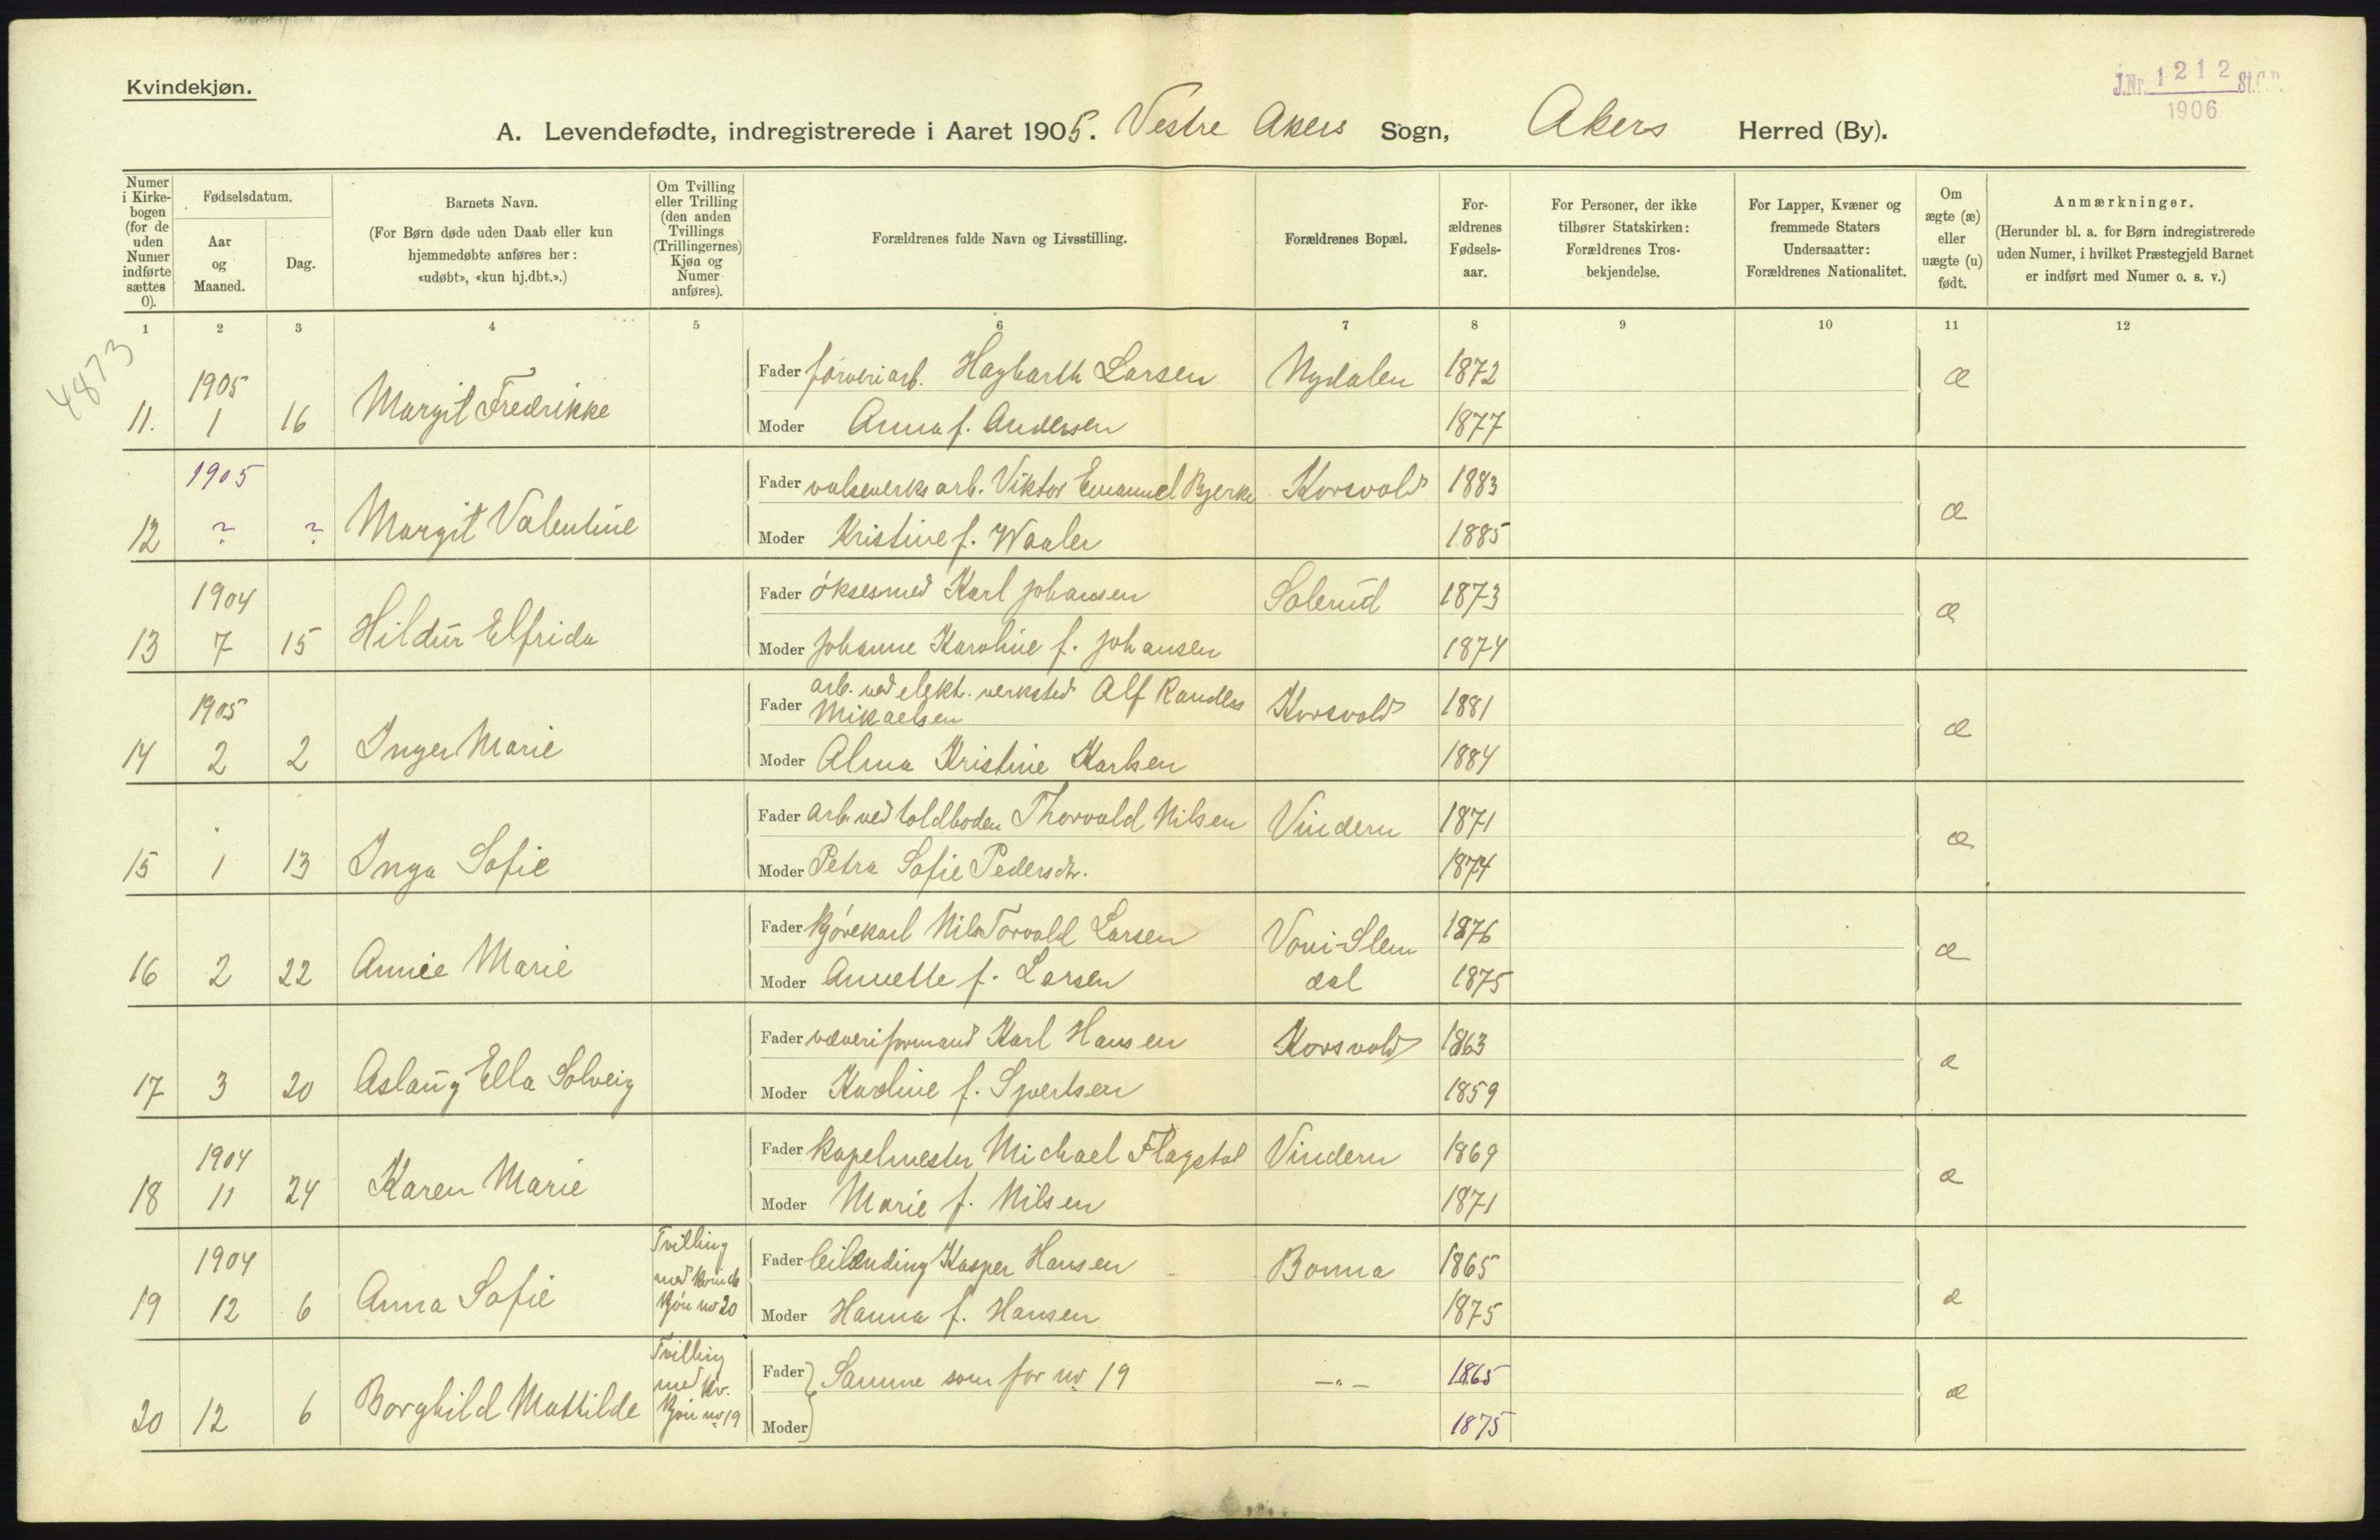 Kvindekjøn.
J.Nr. 1212 St.
1906
A. Levendefødte, indregistrerede i Aaret 1905. Vestre Akers Sogn, Akers Herred (By).
Numer i Kirkebogen (for de uden Numer indførte sættes 0).
Fødselsdatum.
Aar og Maaned.
Dag.
Barnets Navn.
(For Børn døde uden Daab eller kun hjemmedøbte anføres her: «udøbt», «kun hj.dbt.».)
Om Tvilling eller Trilling (den anden Tvillings (Trillingernes) Kjøn og Numer anføres).
Forældrenes fulde Navn og Livsstilling.
Forældrenes Bopæl.
Forældrenes Fødselsaar.
For Personer, der ikke tilhører Statskirken: Forældrenes Trosbekjendelse.
For Lapper, Kvæner og fremmede Staters Undersaatter: Forældrenes Nationalitet.
Om ægte (æ) eller uægte (u) født.
Anmærkninger.
(Herunder bl. a. for Børn indregistrerede uden Numer, i hvilket Præstegjeld Barnet er indført med Numer o. s. v.)
1 2 3 4 5 6 7 8 9 10 11 12
4873
1905 Fader farveriarb. Hagbarth Larsen Nydalen 1872 æ
11. 1 16 Margit Fredrikke Moder Anna f. Andersen 1877
1905 Fader valseverksarb. Viktor Emanuel Bjerke Korsvold 1883 æ
12 ? ? Margit Valentine Moder Kristine f. Waaler 1885
1904 Fader øksesmed Karl Johansen Solerud 1873 æ
13 7 15 Hildur Elfrida Moder Johanne Karoline f. Johansen 1874
1905 Fader arb. ved elekt. verksted Alf Randles
Mikaelsen Korsvold 1881 æ
14 2 2 Inger Marie Moder Alma Kristine Karlsen 1884
Fader arb. ved toldboden Thorvald Nilsen Vindern 1871 æ
15 1 13 Inga Sofie Moder Petra Sofie Pedersdr. 1874
Fader kjørekarl Nils Torvald Larsen Voxi-Slem 1876 æ
16 2 22 Annie Marie Moder Annette f. Larsen dal 1875
Fader væveriformand Karl Hansen Korsvold 1863 æ
17 3 20 Aslaug Ella Solveig Moder Karoline f. Syvertsen 1859
1904 Fader kapelmester Michael Flagstad Vindern 1869 æ
18 11 24 Karen Marie Moder Marie f. Nilsen 1871
1904 Tvilling med kvinde kjøn no 20 Fader leilænding Kasper Hansen Bonna 1865 æ
19 12 6 Anna Sofie Moder Hanna f. Hansen 1875
Tvilling med kv. kjøn no 19 Fader Samme som for no 19 —"— 1865 æ
20 12 6 Borghild Mathilde Moder 1875